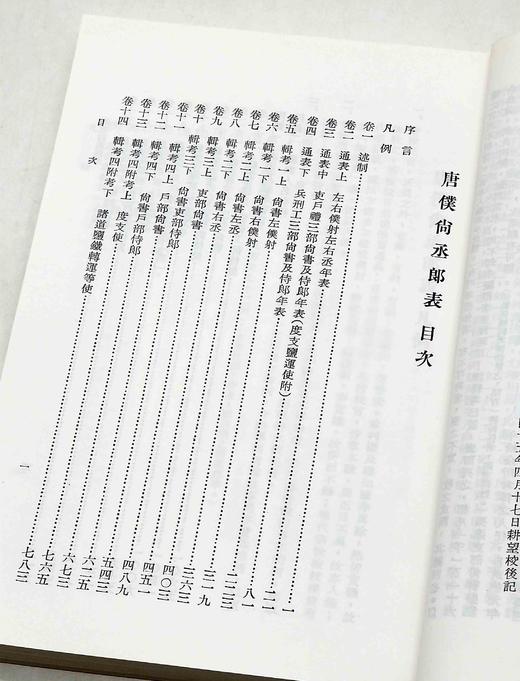 唐僕尚丞郎表 目次
序言
凡例
卷一 述制……一
卷二 通表上 左右僕射左右丞年表……二一
卷三 通表中 吏戶禮三部尚書及侍郎年表……八一
卷四 通表下 兵刑工三部尚書及侍郎年表(度支鹽運使附)……二二三
卷五 輯考一上 尚書左僕射……三一九
卷六 輯考一下 尚書右僕射……三六三
卷七 輯考二上 尚書左丞……四〇三
卷八 輯考二下 尚書右丞……四五一
卷九 輯考三上 吏部尚書……四八九
卷十 輯考三下 尚書吏部侍郎……五四三
卷十一 輯考四上 戶部尚書……六二五
卷十二 輯考四下 尚書戶部侍郎……六七三
卷十三 輯考四附考上 度支使……七六五
卷十四 輯考四附考下 諸道鹽鐵轉運等使……七八三
目次
一
年四月十七日耕望校後記